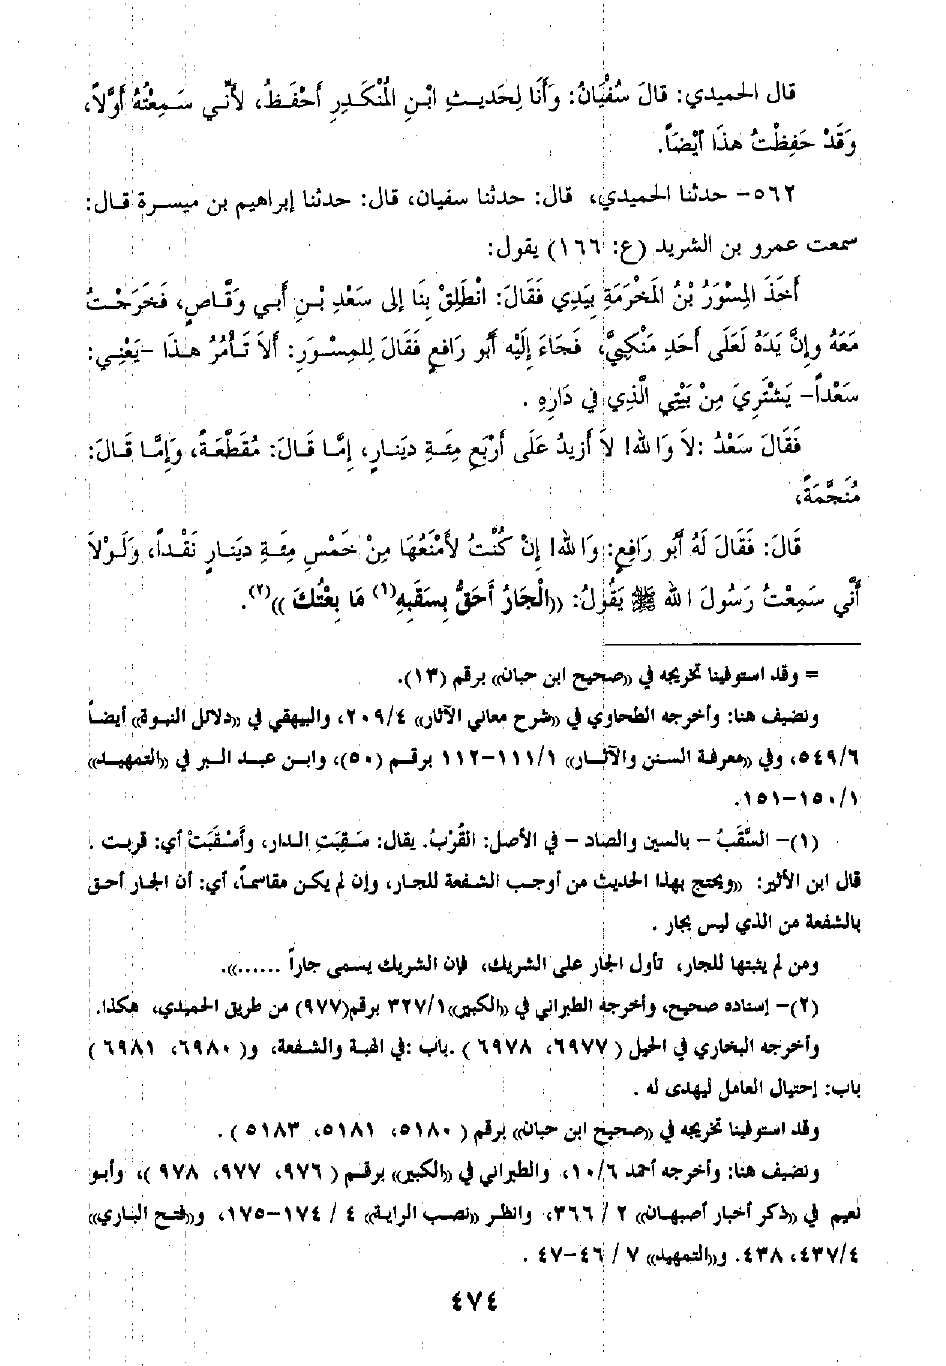 قال الحميدي: قالَ سُفْيَانُ: وَأَنَا لِحَديـثِ ابْـنِ الْمُنْكَـدِرِ أَحْفَـظُ، لأَنّـي سَـمِعْتُهُ أَوَّلاً،
وَقَدْ حَفِظْتُ هذَا أَيْضَاً.
٥٦٢- حدثنا الحميدي، قال: حدثنا سفيان، قال: حدثنا إبراهيم بن ميسـرة قـال:
سمعت عمرو بن الشريد (ع: ١٦٦) يقول:
أَخَذَ الْمِسْوَرُ بْنُ الْمَخْرَمَةِ بِيَدِي فَقَالَ: انْطَلِقْ بِنَا إلى سَعْدِ بْـنِ أَبـي وَقَّـاصٍ، فَخَرَجْـتُ
مَعَهُ وإنَّ يَدَهُ لَعَلَى أَحَدِ مَنْكِبَيَّ، فَجَاءَ إلَيْه أَبُو رَافِعٍ فَقَالَ لِلْمِسْـوَرِ: أَلاَ تَـأْمُرُ هـذَا -يَعْنِـي:
سَعْداً- يَشْتَرِيَ مِنْ بَيْتِي الَّذِي في دَارِهِ .
فَقَالَ سَعْدُ :لاَ وَا لله! لاَ أَزيدُ عَلَى أَرْبَعِ مِئَـةِ دينَـارٍ، إمَّـا قَـالَ: مُقَطَّعَـةً، وَإمَّا قَـالَ:
مُنَجَّمَةً،
قَالَ: فَقَالَ لَهُ أَبُو رَافِعٍ: وَا لله! إنْ كُنْتُ لأَمْنَعُهَا مِنْ خَمْسِ مِئَـةِ دينَـارٍ نَقْـداً، وَلَـوْلاَ
أَنّي سَمِعْتُ رَسُولَ ا لله ﷺ يَقُولُ: «الْجَارُ أَحَقُّ بِسَقَبِهِ(١) مَا بِعْتُكَ »(٢).
= وقد استوفينا تخريجه في «صحيح ابن حبان» برقم (١٣).
ونضيف هنا: وأخرجه الطحاوي في «شرح معاني الآثار» ٢٠٩/٤، والبيهقي في «دلائل النبوة» أيضـاً
٥٤٩/٦، وفي «معرفة السنن والآثـار» ١١١/١-١١٢ برقـم (٥٠)، وابـن عبـد الـبر في «التمهيـد»
١٥٠/١-١٥١.
(١)- السَّقَبُ - بالسين والصاد - في الأصل: القُرْبُ. يقال: سَـقِبَتِ الـدار، وأَسْـقَبَتْ أي: قربـت .
قال ابن الأثير: «ويحتج بهذا الحديث من أوجـب الشـفعة للجـار، وإن لم يكـن مقاسمـاً، أي: أن الجـار أحـق
بالشفعة من الذي ليس بجار .
ومن لم يثبتها للجار، تأول الجار على الشريك، فإن الشريك يسمى جاراً ......».
(٢)- إسناده صحيح، وأخرجه الطبراني في «الكبير»٣٢٧/١ برقم(٩٧٧) من طريق الحميدي، هكذا.
وأخرجه البخاري في الحيل ( ٦٩٧٧، ٦٩٧٨ ) .باب :في الهبة والشفعة، و( ٦٩٨٠، ٦٩٨١ )
باب: إحتيال العامل ليهدى له .
وقد استوفينا تخريجه في «صحيح ابن حبان» برقم ( ٥١٨٠، ٥١٨١، ٥١٨٣ ) .
ونضيف هنا: وأخرجه أحمد ١٠/٦، والطبراني في «الكبير» برقـم ( ٩٧٦، ٩٧٧، ٩٧٨ )، وأبـو
نعيم في «ذكر أخبار أصبهـان» ٢ / ٣٦٦، وانظر «نصـب الرايـة» ٤ / ١٧٤-١٧٥، و«فتـح البـاري»
٤٣٧/٤، ٤٣٨. و«التمهيد» ٧ / ٤٦-٤٧ .
٤٧٤